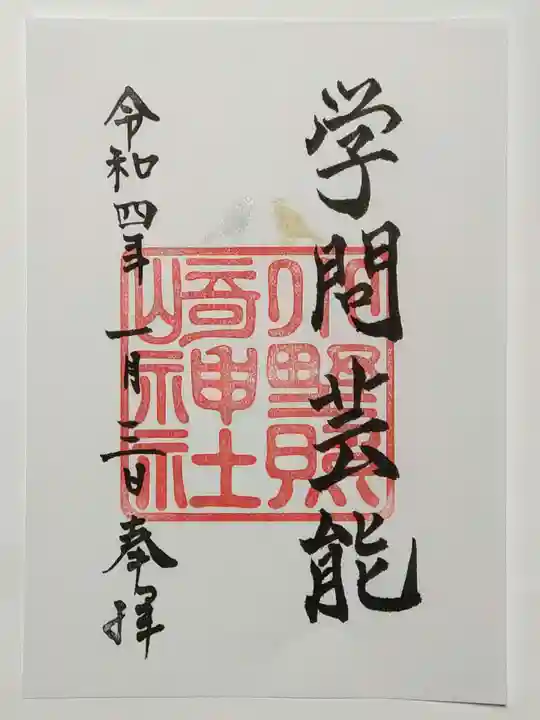 学問芸能
小野照
崎神社
令和四年一月三日奉拝